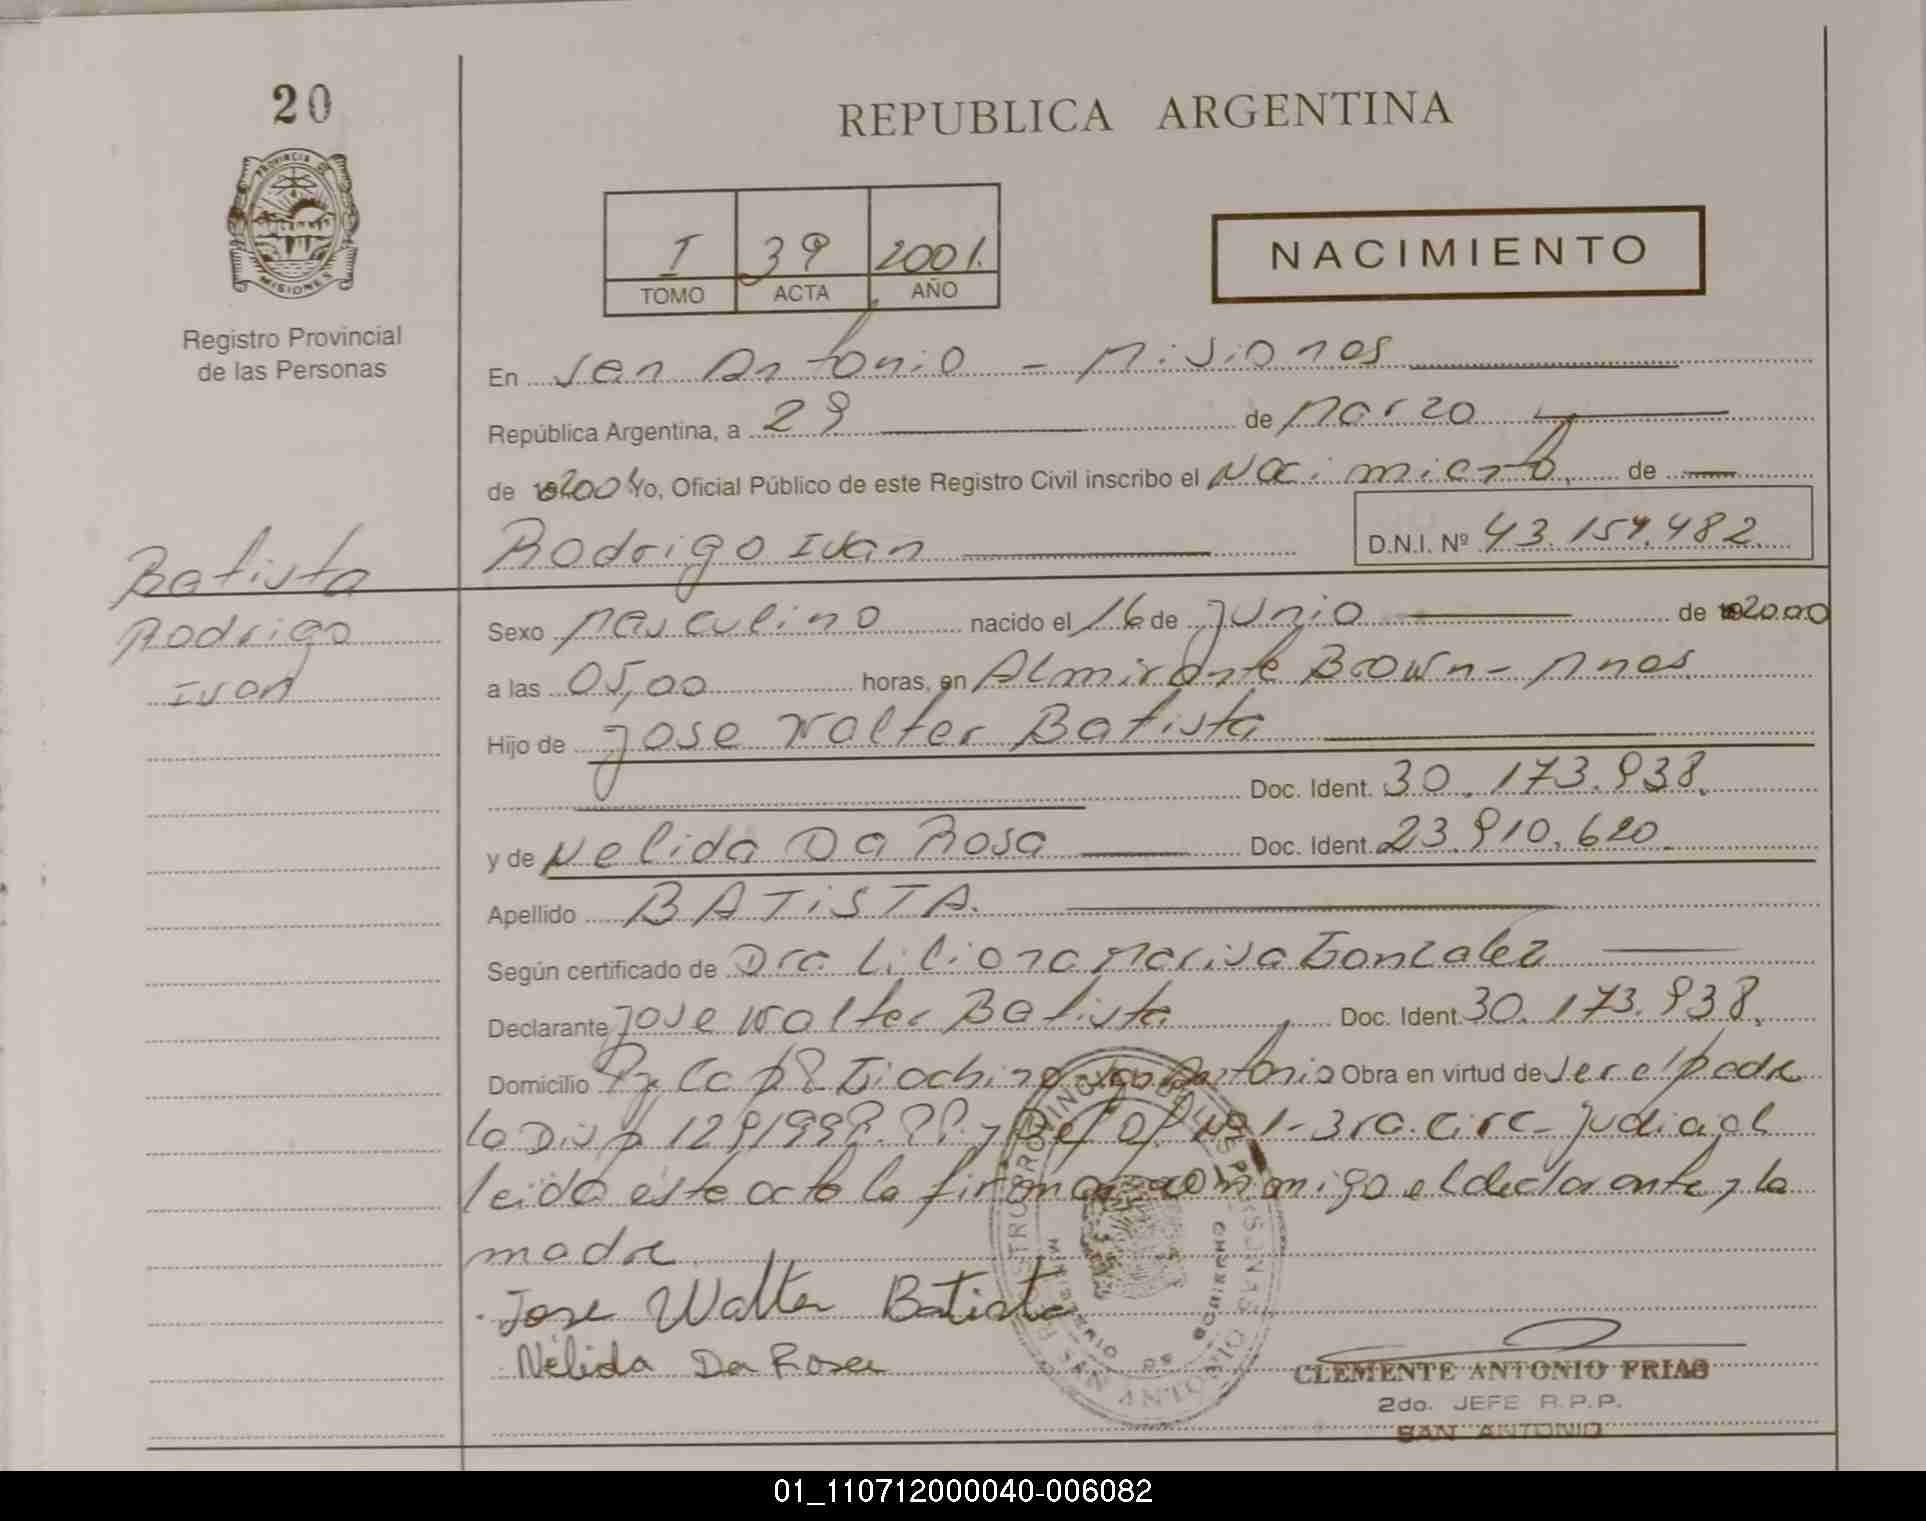 20
REPUBLICA ARGENTINA
PROVINCIA DE
MISIONES
I 39 2001.
TOMO ACTA AÑO
NACIMIENTO
Registro Provincial
de las Personas
En San Antonio - Misiones
República Argentina, a 29 de Marzo
de 2001 Yo, Oficial Público de este Registro Civil inscribo el Nacimiento, de
Rodrigo Ivan D.N.I. Nº 43.154.482.
Batista
Rodrigo
Ivan
Sexo Masculino nacido el 16 de junio de 2000
a las 05,00 horas, en Almirante Brown - Mnes.
Hijo de Jose Walter Batista
Doc. Ident. 30.173.938.
y de Nelida Da Rosa Doc. Ident. 23.910.620.
Apellido BATISTA.
Según certificado de Dra Liliana Marisa Gonzalez
Declarante Jose Walter Batista Doc. Ident. 30.173.938.
Domicilio Giachino Antonio Obra en virtud de ser el padre
la Disp Nº 1-3ra. Circ- judicial
leida este acta la firman conmigo el declarante y la
madre.
Jose Walter Batista
Nélida Da Rosa
MINISTERIO DE GOBIERNO
SAN ANTONIO
CLEMENTE ANTONIO FRIAS
2do. JEFE R.P.P.
SAN ANTONIO
01_110712000040-006082